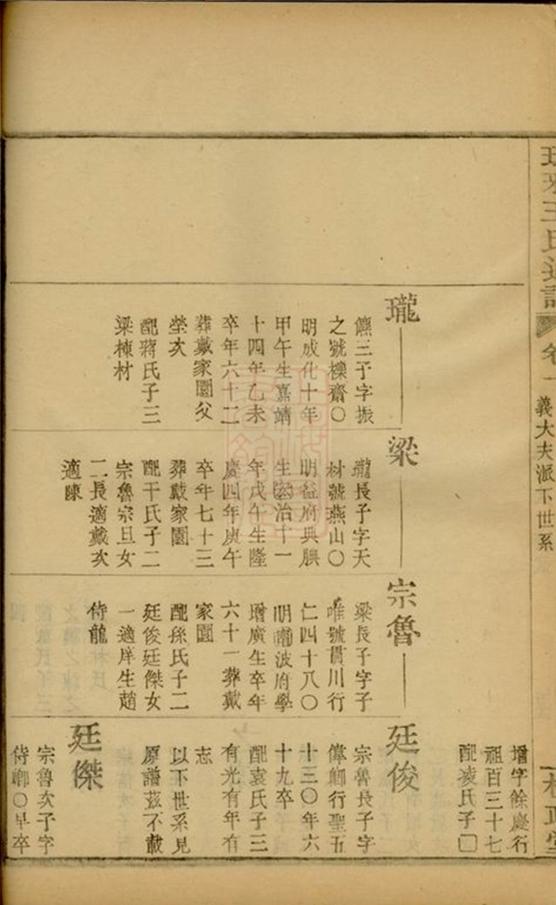 義大夫派下世系
增字餘慶行
祖百三十七
配凌氏子□
瓏
鏕三子字振
之號櫟齋○
明成化十年
甲午生嘉靖
十四年乙未
卒年六十二
葬戴家園父
塋次
配蔣氏子三
梁棟材
梁
瓏長子字天
材號燕山○
明益府典膳
生弘治十一
年戊午生隆
慶四年庚午
卒年七十三
葬戴家園
配干氏子二
宗魯宗旦女
二長適戴次
適陳
宗魯
梁長子字子
唯號貫川行
仁四十八○
明寧波府學
增廣生卒年
六十一葬戴
家園
配孫氏子二
廷俊廷傑女
一適庠生趙
侍龍
廷俊
宗魯長子字
偉卿行聖五
十三○年六
十九卒
配袁氏子三
有光有年有
志
以下世系見
原譜茲不載
廷傑
宗魯次子字
侍卿○早卒